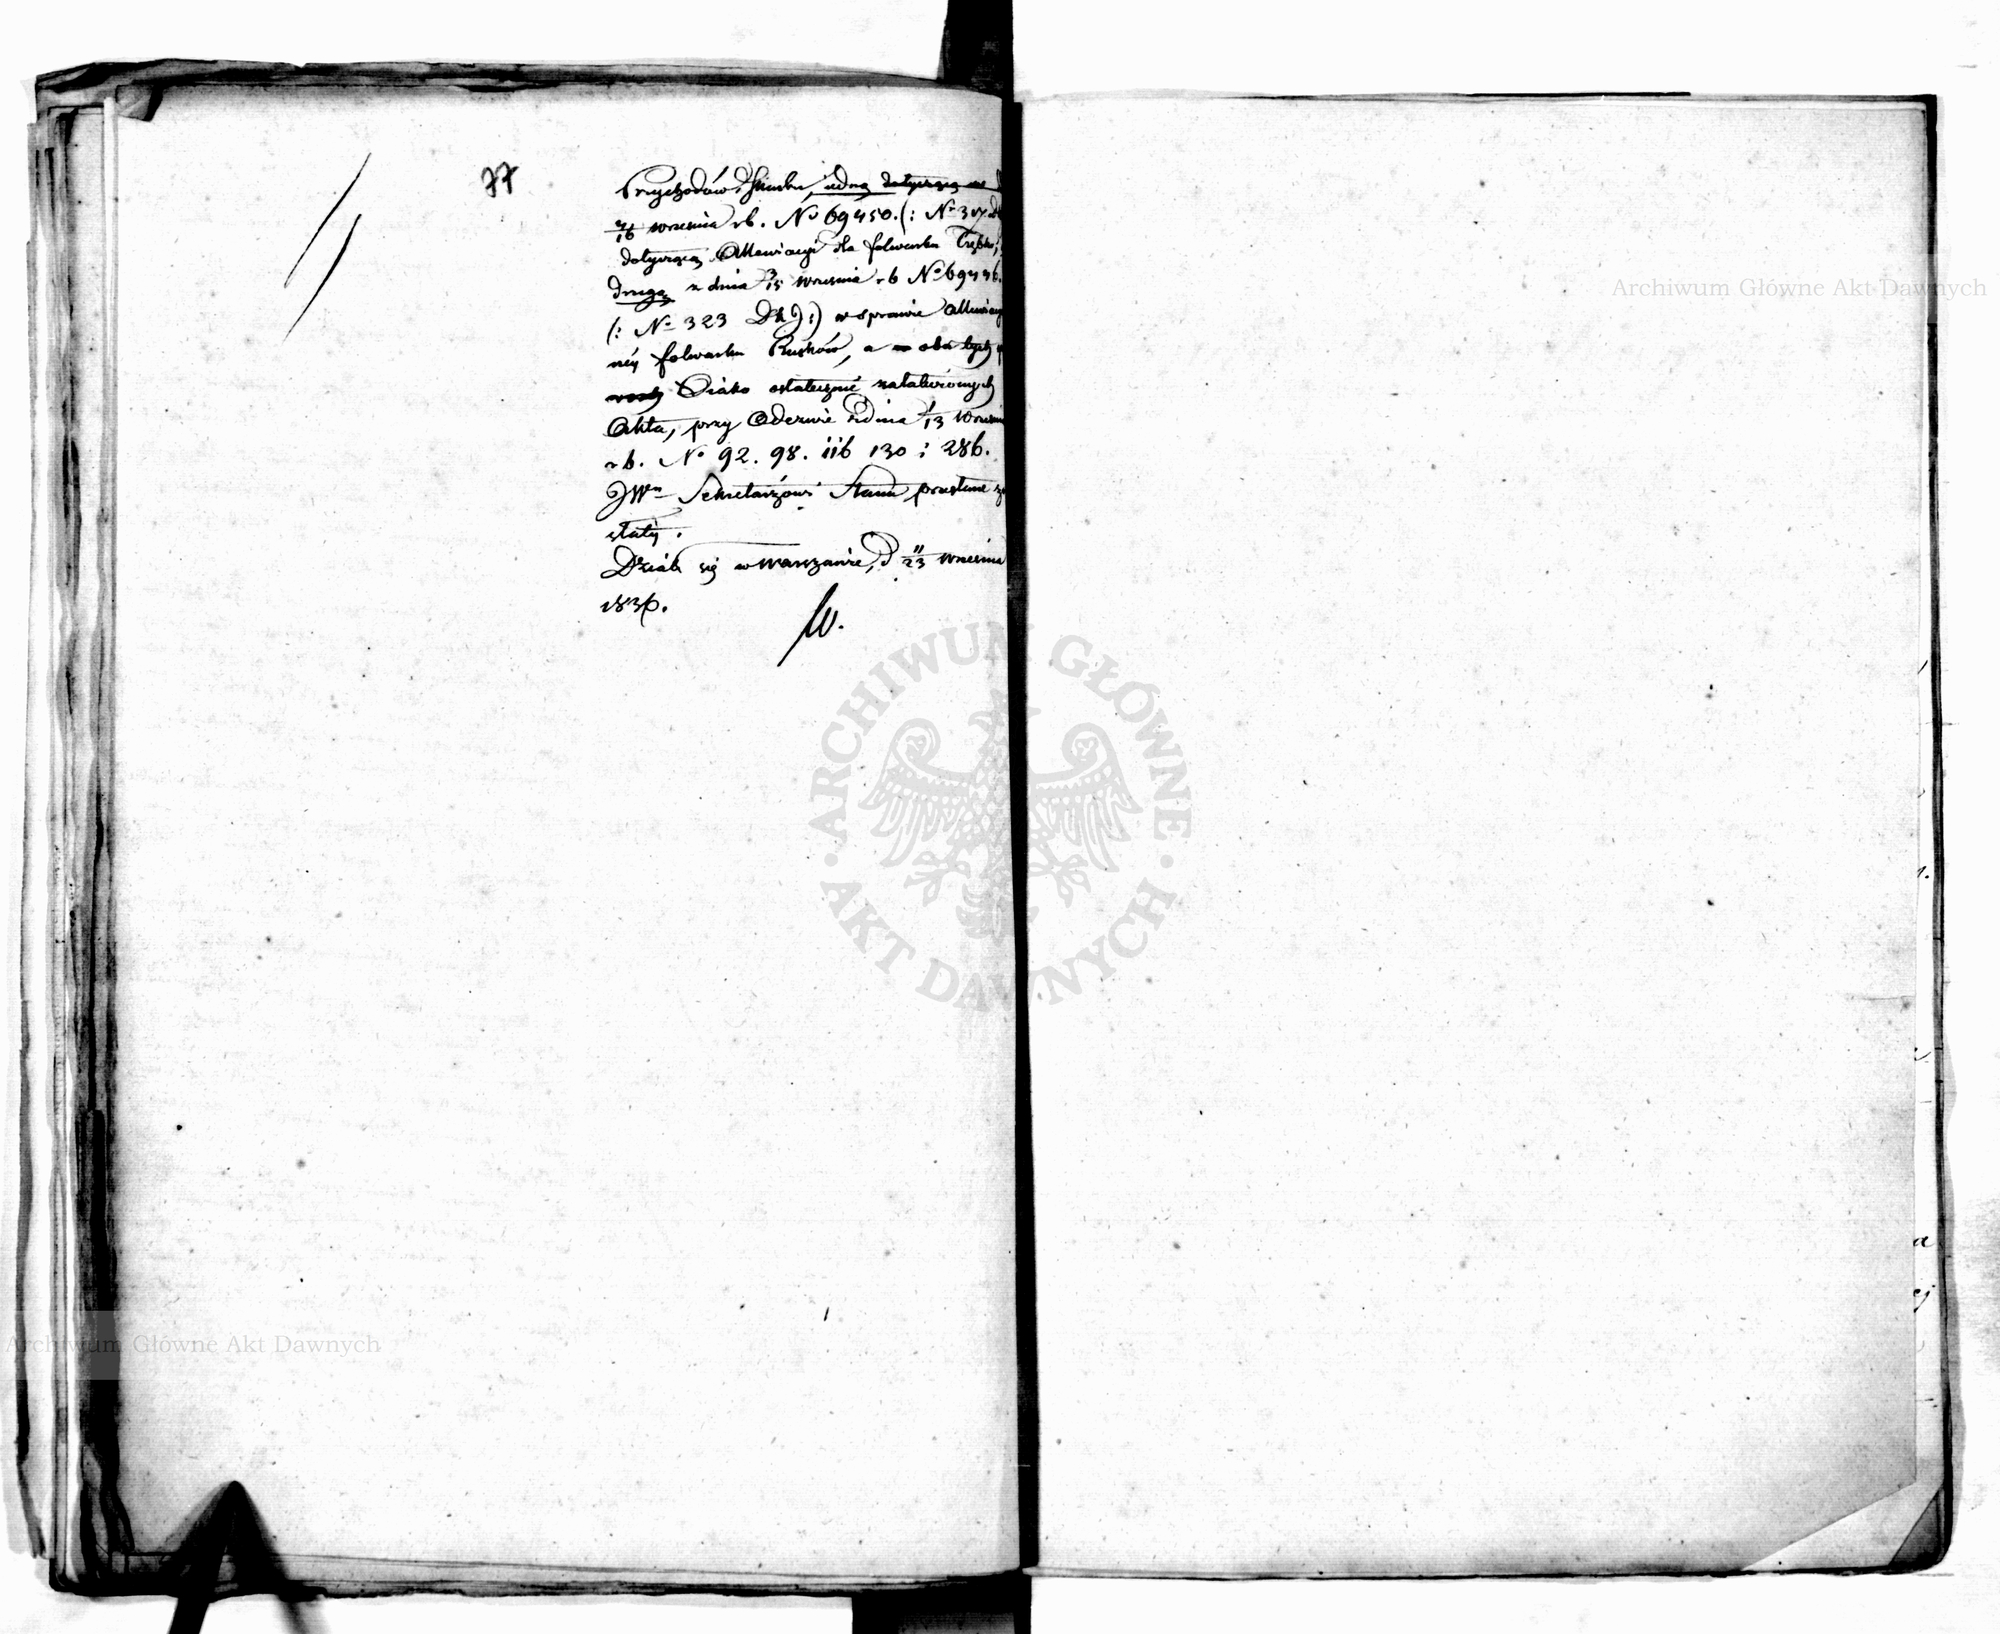 77
Przychodów i Skarbu, jedną dotyczącą
4/16 września rb. No 69450. (: No 317
dotyczącą Allewiacyi dla folwarku
drugą z dnia 3/15 września rb No 69446.
(: No 323 :) w sprawie Allewiacyi
néy folwarku Rusków, a
jako ostatecznie załatwionych
Akta, przy Odezwie z dnia 1/13 Wrześn
rb. No 92. 98. 116 130 i 286.
JWu Sekretarzowi Stanu przesłane zo
stały.
Działo się w Warszawie, d 11/23 września
1836.
W.
Archiwum Główne Akt Dawnych
ARCHIWUM GŁÓWNE AKT DAWNYCH
Archiwum Główne Akt Dawnych